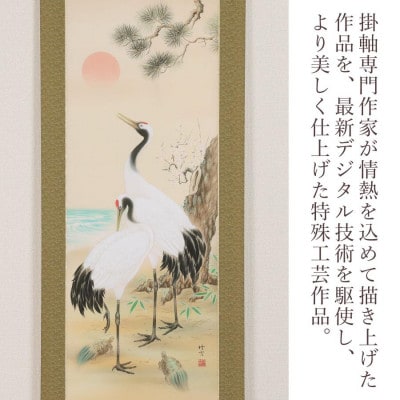 掛軸専門作家が情熱を込めて描き上げた
作品を、最新デジタル技術を駆使し、
より美しく仕上げた特殊工芸作品。